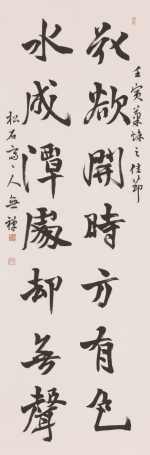 花欲開時方有色
水成潭處却無聲
壬寅菊秋之佳節
松石齋人無禪